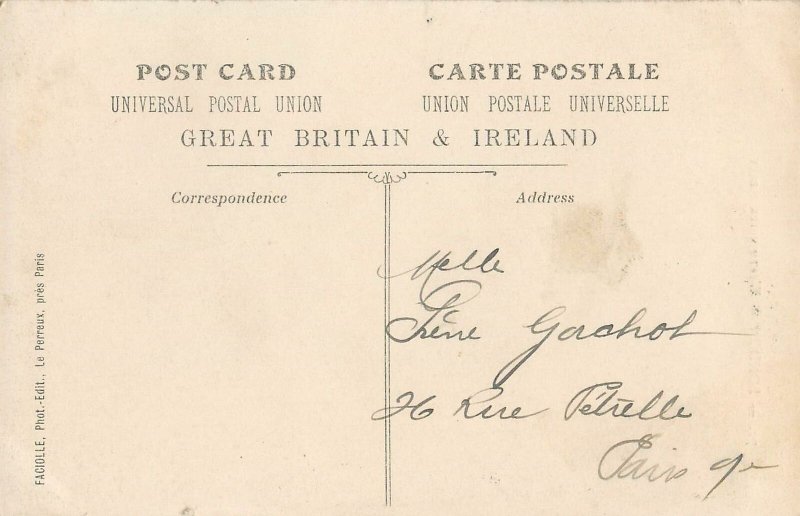 POST CARD
CARTE POSTALE
UNIVERSAL POSTAL UNION
UNION POSTALE UNIVERSELLE
GREAT BRITAIN & IRELAND
Correspondence
Address
Melle
Irène Gachot
26 Rue Pétrelle
Paris 9e
FACIOLLE, Phot.-Edit., Le Perreux, près Paris